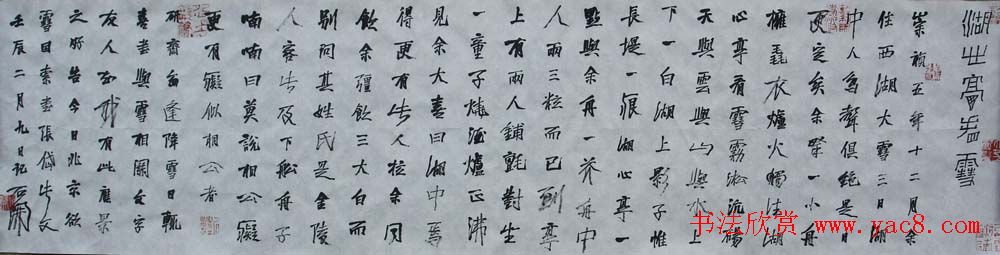 湖心亭看雪
崇禎五年十二月余
住西湖大雪三日湖
中人鳥聲俱絕是日
更定矣余拏一小舟
擁毳衣爐火獨往湖
心亭看雪霧凇沆碭
天與雲與山與水上
下一白湖上影子惟
長堤一痕湖心亭一
點與余舟一芥舟中
人兩三粒而已到亭
上有兩人鋪氈對坐
一童子燒酒爐正沸
見余大喜曰湖中焉
得更有此人拉余同
飲余彊飲三大白而
別問其姓氏是金陵
人客此及下船舟子
喃喃曰莫說相公癡
更有癡似相公者
研齋每逢降雪日輒
喜書與雪相關文字
友人有此應景
之好告今日北京欲
雪因索書張岱此文
壬辰二月九日記
书法欣赏
www.yac8.com